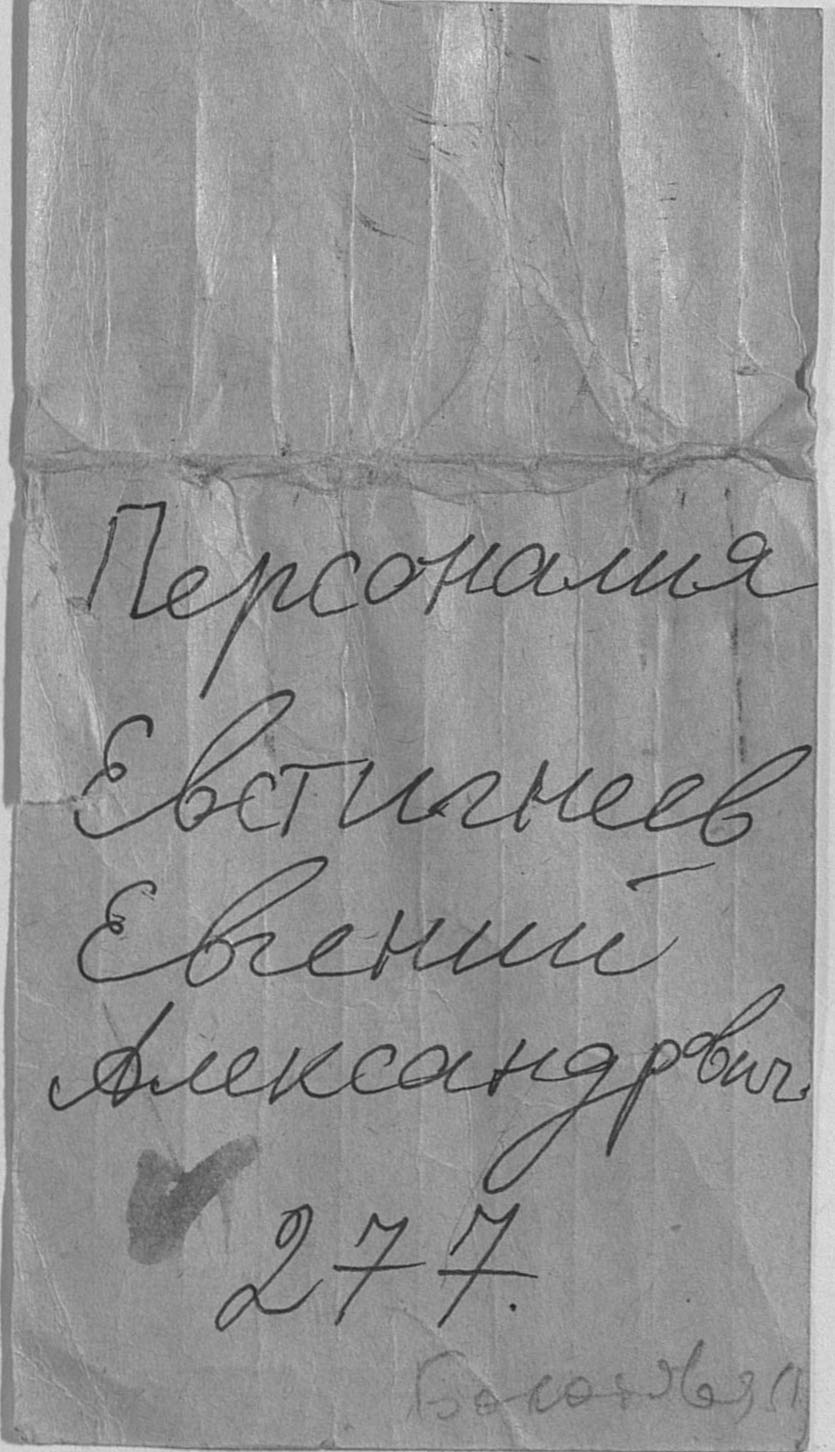 Персоналия
Евстигнеев
Евгений
Александрович
277.